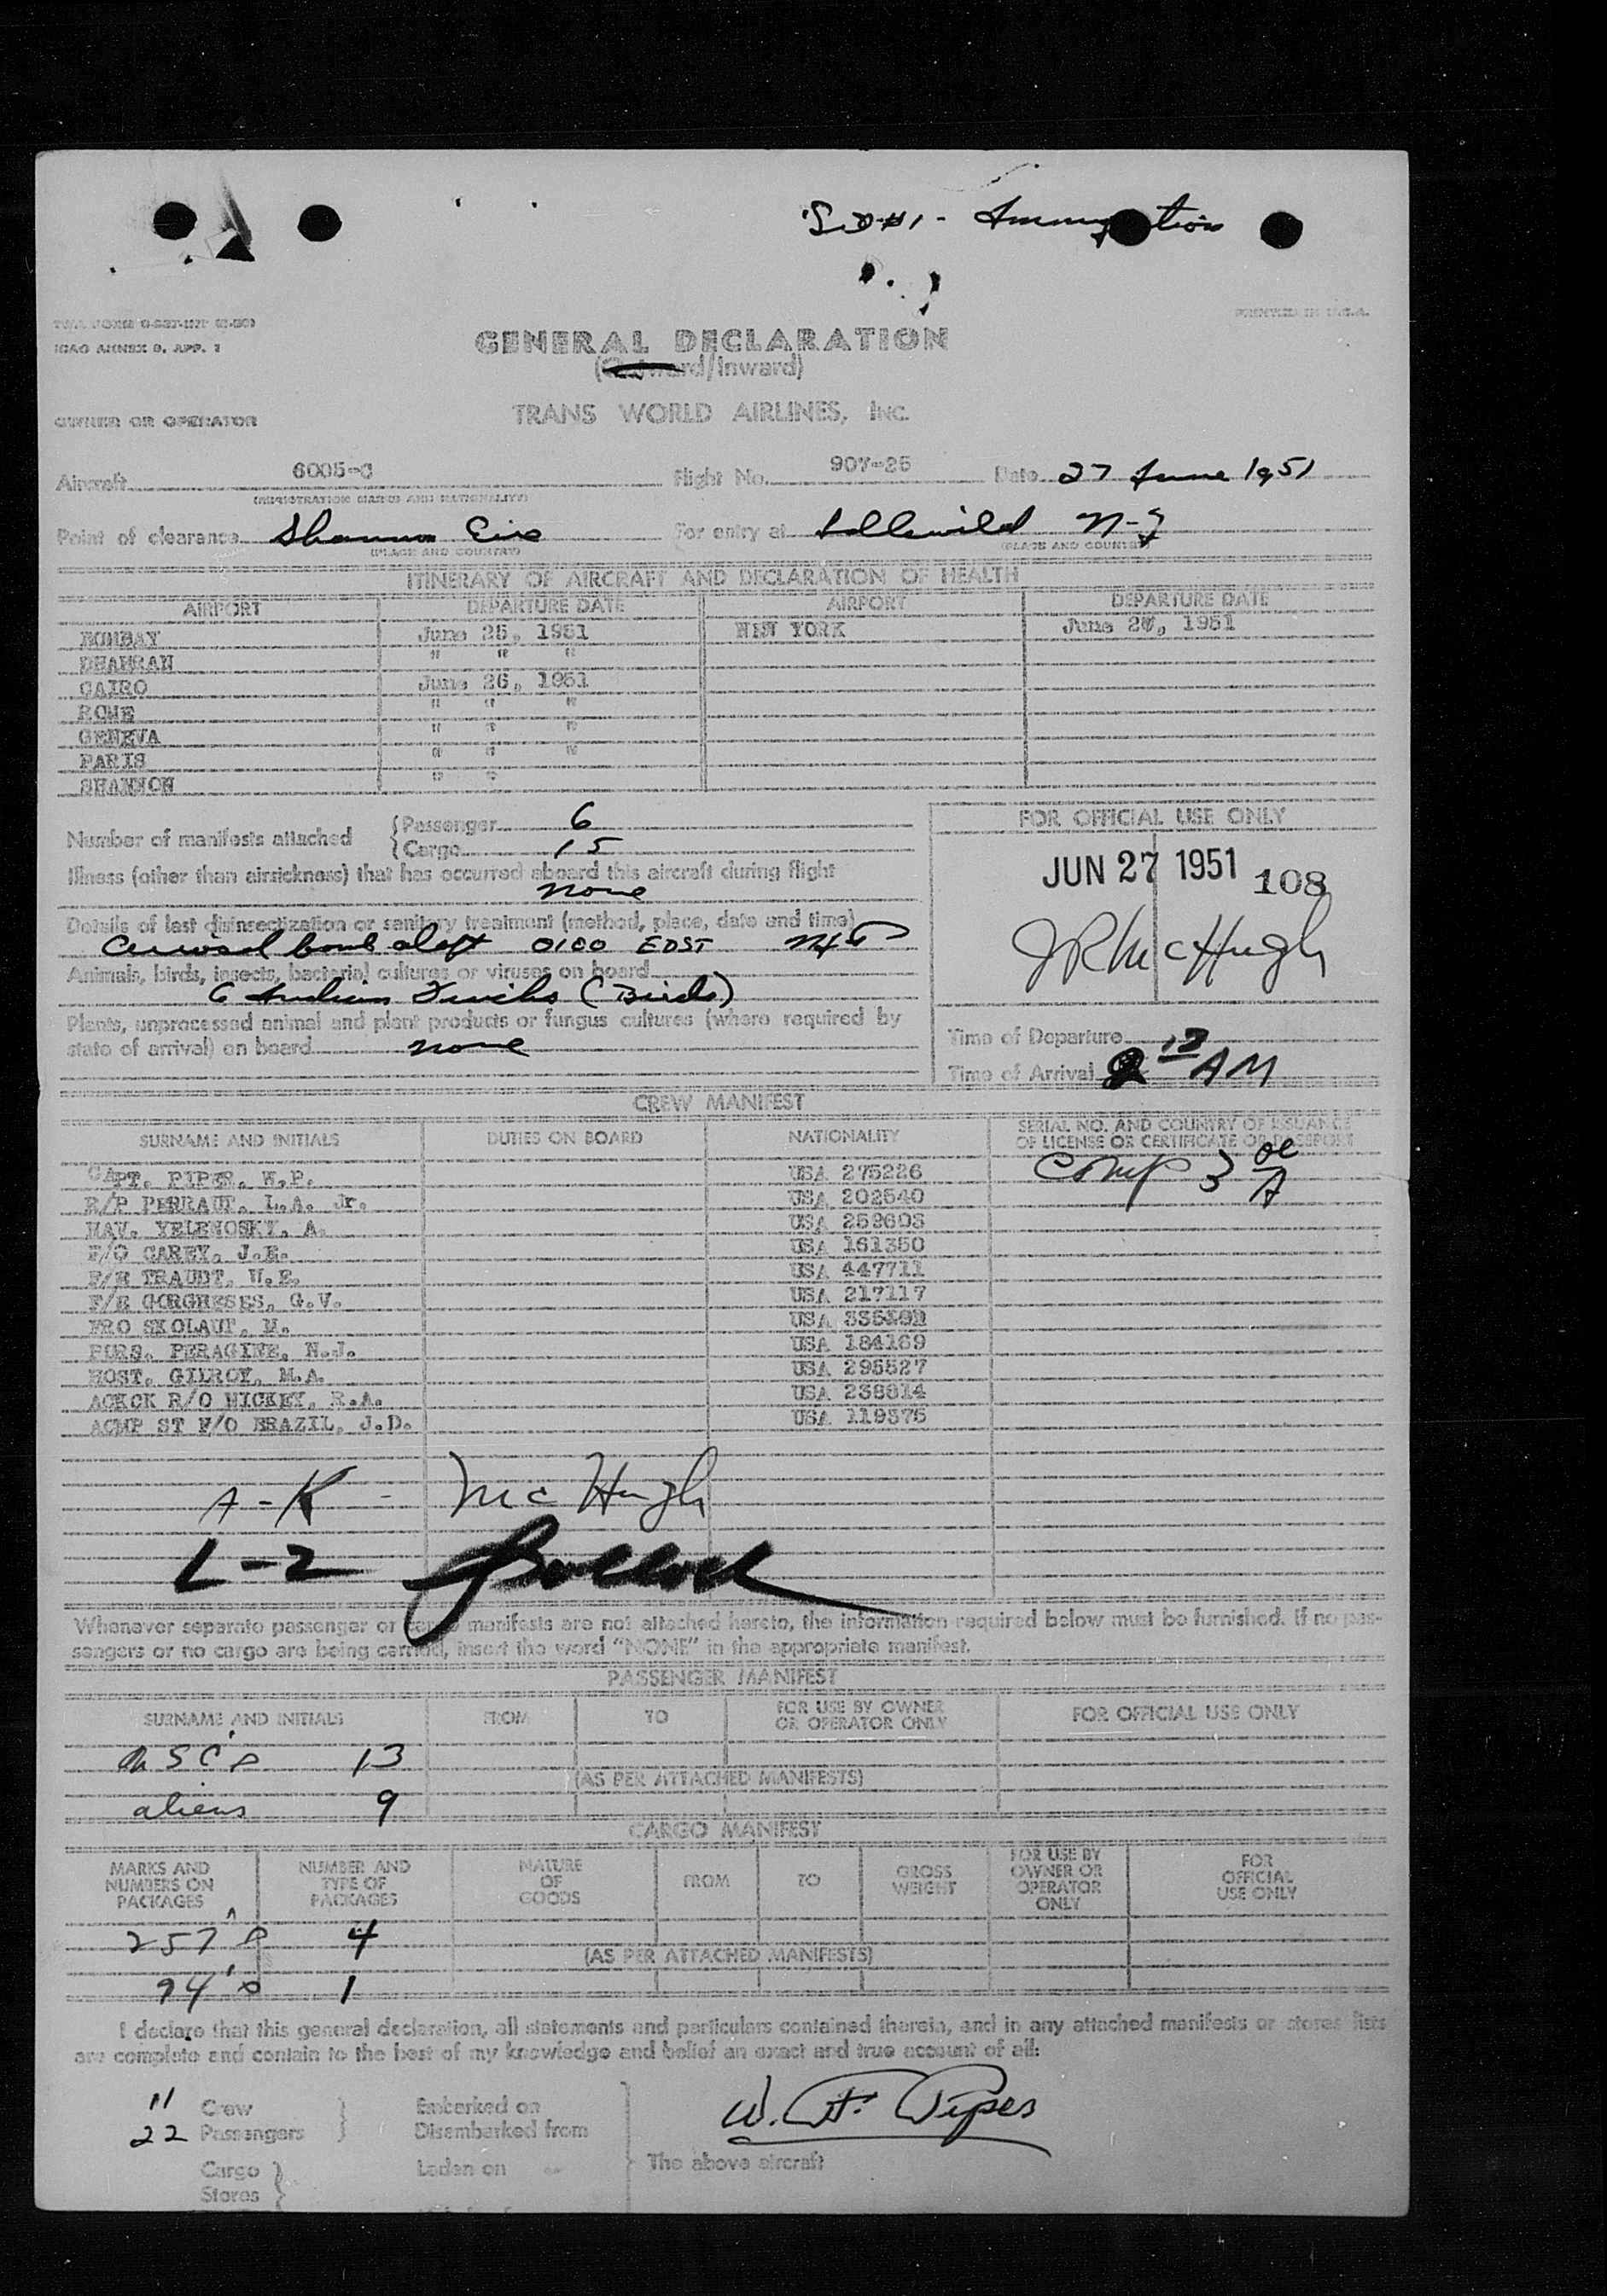 GENERAL DECLARATION
(Outward/Inward)
PRINTED IN U.S.A.
ICAO ANNEX 9, APP. 1
OWNER OR OPERATOR
TRANS WORLD AIRLINES, INC.
Aircraft 6005-C Flight No. 907-25 Date 27 June 1951
(REGISTRATION MARKS AND NATIONALITY)
Point of clearance Shannon Eire For entry at Idlewild N-Y
(PLACE AND COUNTRY) (PLACE AND COUNTRY)
ITINERARY OF AIRCRAFT AND DECLARATION OF HEALTH
AIRPORT DEPARTURE DATE AIRPORT DEPARTURE DATE
BOMBAY June 25, 1951 NEW YORK June 27, 1951
DHAHRAN " " "
CAIRO June 26, 1951
ROME " " "
GENEVA " " "
PARIS " " "
SHANNON " "
Number of manifests attached { Passenger 6
{ Cargo 15
Illness (other than airsickness) that has occurred aboard this aircraft during flight
none
Details of last disinsectization or sanitary treatment (method, place, date and time)
bomb aloft 0100 EDST
Animals, birds, insects, bacterial cultures or viruses on board
6 Indian (Birds)
Plants, unprocessed animal and plant products or fungus cultures (where required by
state of arrival) on board none
FOR OFFICIAL USE ONLY
JUN 27 1951 108
JR McHugh
Time of Departure
Time of Arrival AM
CREW MANIFEST
SURNAME AND INITIALS DUTIES ON BOARD NATIONALITY SERIAL NO. AND COUNTRY OF ISSUANCE
OF LICENSE OR CERTIFICATE OR PASSPORT
CAPT. PIPER, W.P. USA 275226 Comp 3
R/P PERRAUT, L.A. Jr. USA 202540
NAV. YELENOSKY, A. USA 259603
F/O CAREY, J.E. USA 161350
F/E TRAUDT, W.E. USA 447711
F/E GORGHESES, G.V. USA 217117
FRO SKOLAUT, M. USA
PURS. PERAGINE, N.J. USA 184169
HOST. GILROY, M.A. USA 295527
ACKCK R/O HICKEY, R.A. USA 238814
ACMP ST F/O BRAZIL, J.D. USA 119376
A-K - McHugh
L-Z
Whenever separate passenger or cargo manifests are not attached hereto, the information required below must be furnished. If no pas-
sengers or no cargo are being carried, insert the word "NONE" in the appropriate manifest.
PASSENGER MANIFEST
SURNAME AND INITIALS FROM TO FOR USE BY OWNER
OR OPERATOR ONLY FOR OFFICIAL USE ONLY
USC's 13
(AS PER ATTACHED MANIFESTS)
aliens 9
CARGO MANIFEST
MARKS AND
NUMBERS ON
PACKAGES NUMBER AND
TYPE OF
PACKAGES NATURE
OF
GOODS FROM TO GROSS
WEIGHT FOR USE BY
OWNER OR
OPERATOR
ONLY FOR
OFFICIAL
USE ONLY
257's 4
(AS PER ATTACHED MANIFESTS)
94's 1
I declare that this general declaration, all statements and particulars contained therein, and in any attached manifests or stores lists
are complete and contain to the best of my knowledge and belief an exact and true account of all:
11 Crew } Embarked on
22 Passengers } Disembarked from
Cargo } Laden on
Stores }
The above aircraft